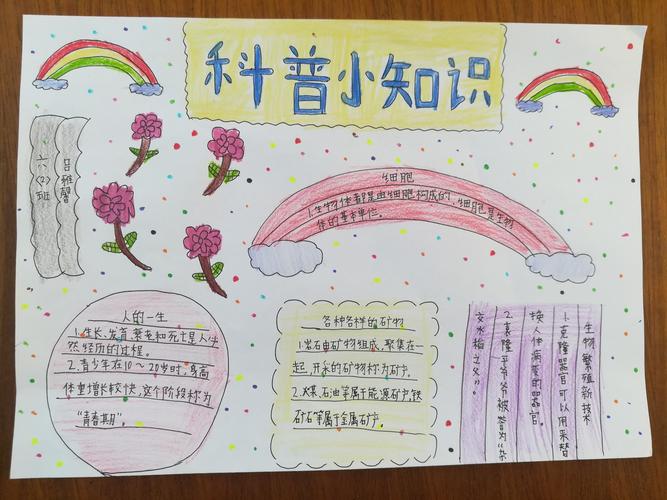 科普小知识
六(2)班
吕雅馨
细胞
1.生物体都是由细胞构成的,细胞是生物
体的基本单位。
人的一生
1.生长、发育、衰老和死亡是人生
然经历的过程。
2.青少年在10~20岁时,身高
体重增长较快,这个阶段称为
"青春期"。
各种各样的矿物
1.岩石由矿物组成,聚集在一
起,开采的矿物称为矿产。
2.煤、石油等属于能源矿产,铁
矿石等属于金属矿产。
生物繁殖新技术
1.克隆器官可以用来替
换人体病变的器官。
2.袁隆平爷爷被誉为"杂
交水稻之父"。